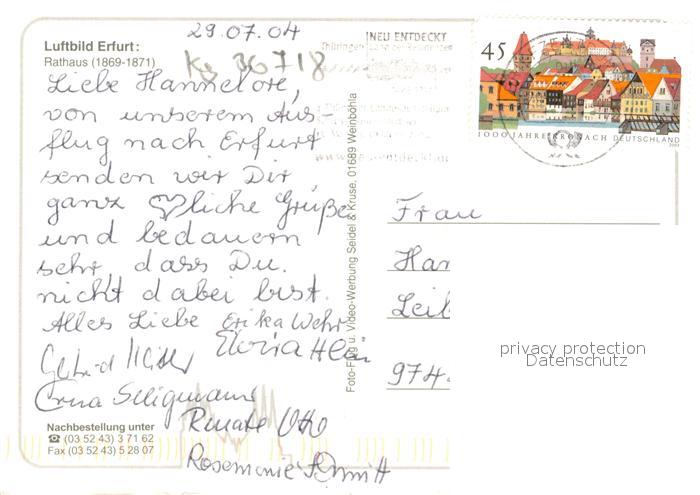 29.07.04
Luftbild Erfurt:
Rathaus (1869-1871)
Liebe Hannelore,
von unserem Aus-
flug nach Erfurt
senden wir Dir
ganz ♡liche Grüße
und bedauern
sehr, dass Du
nicht dabei bist.
Alles Liebe Erika Wehr
Erna Seligmann
Renate Otto
Rosemarie Schmitt
Nachbestellung unter
☎ (03 52 43) 3 71 62
Fax (03 52 43) 5 28 07
Foto-Flug u. Video-Werbung Seidel & Kruse, 01689 Weinböhla
NEU ENTDECKT
45
1000 JAHRE KRONACH DEUTSCHLAND
Frau
Han
Leib
974
privacy protection
Datenschutz